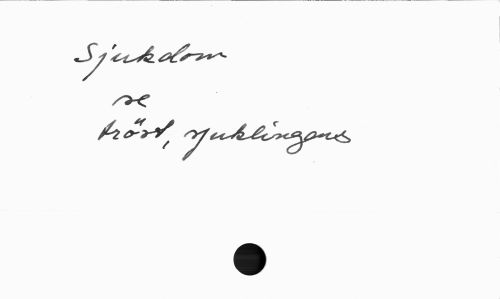 Sjukdom
se
tröst, sjuklingens